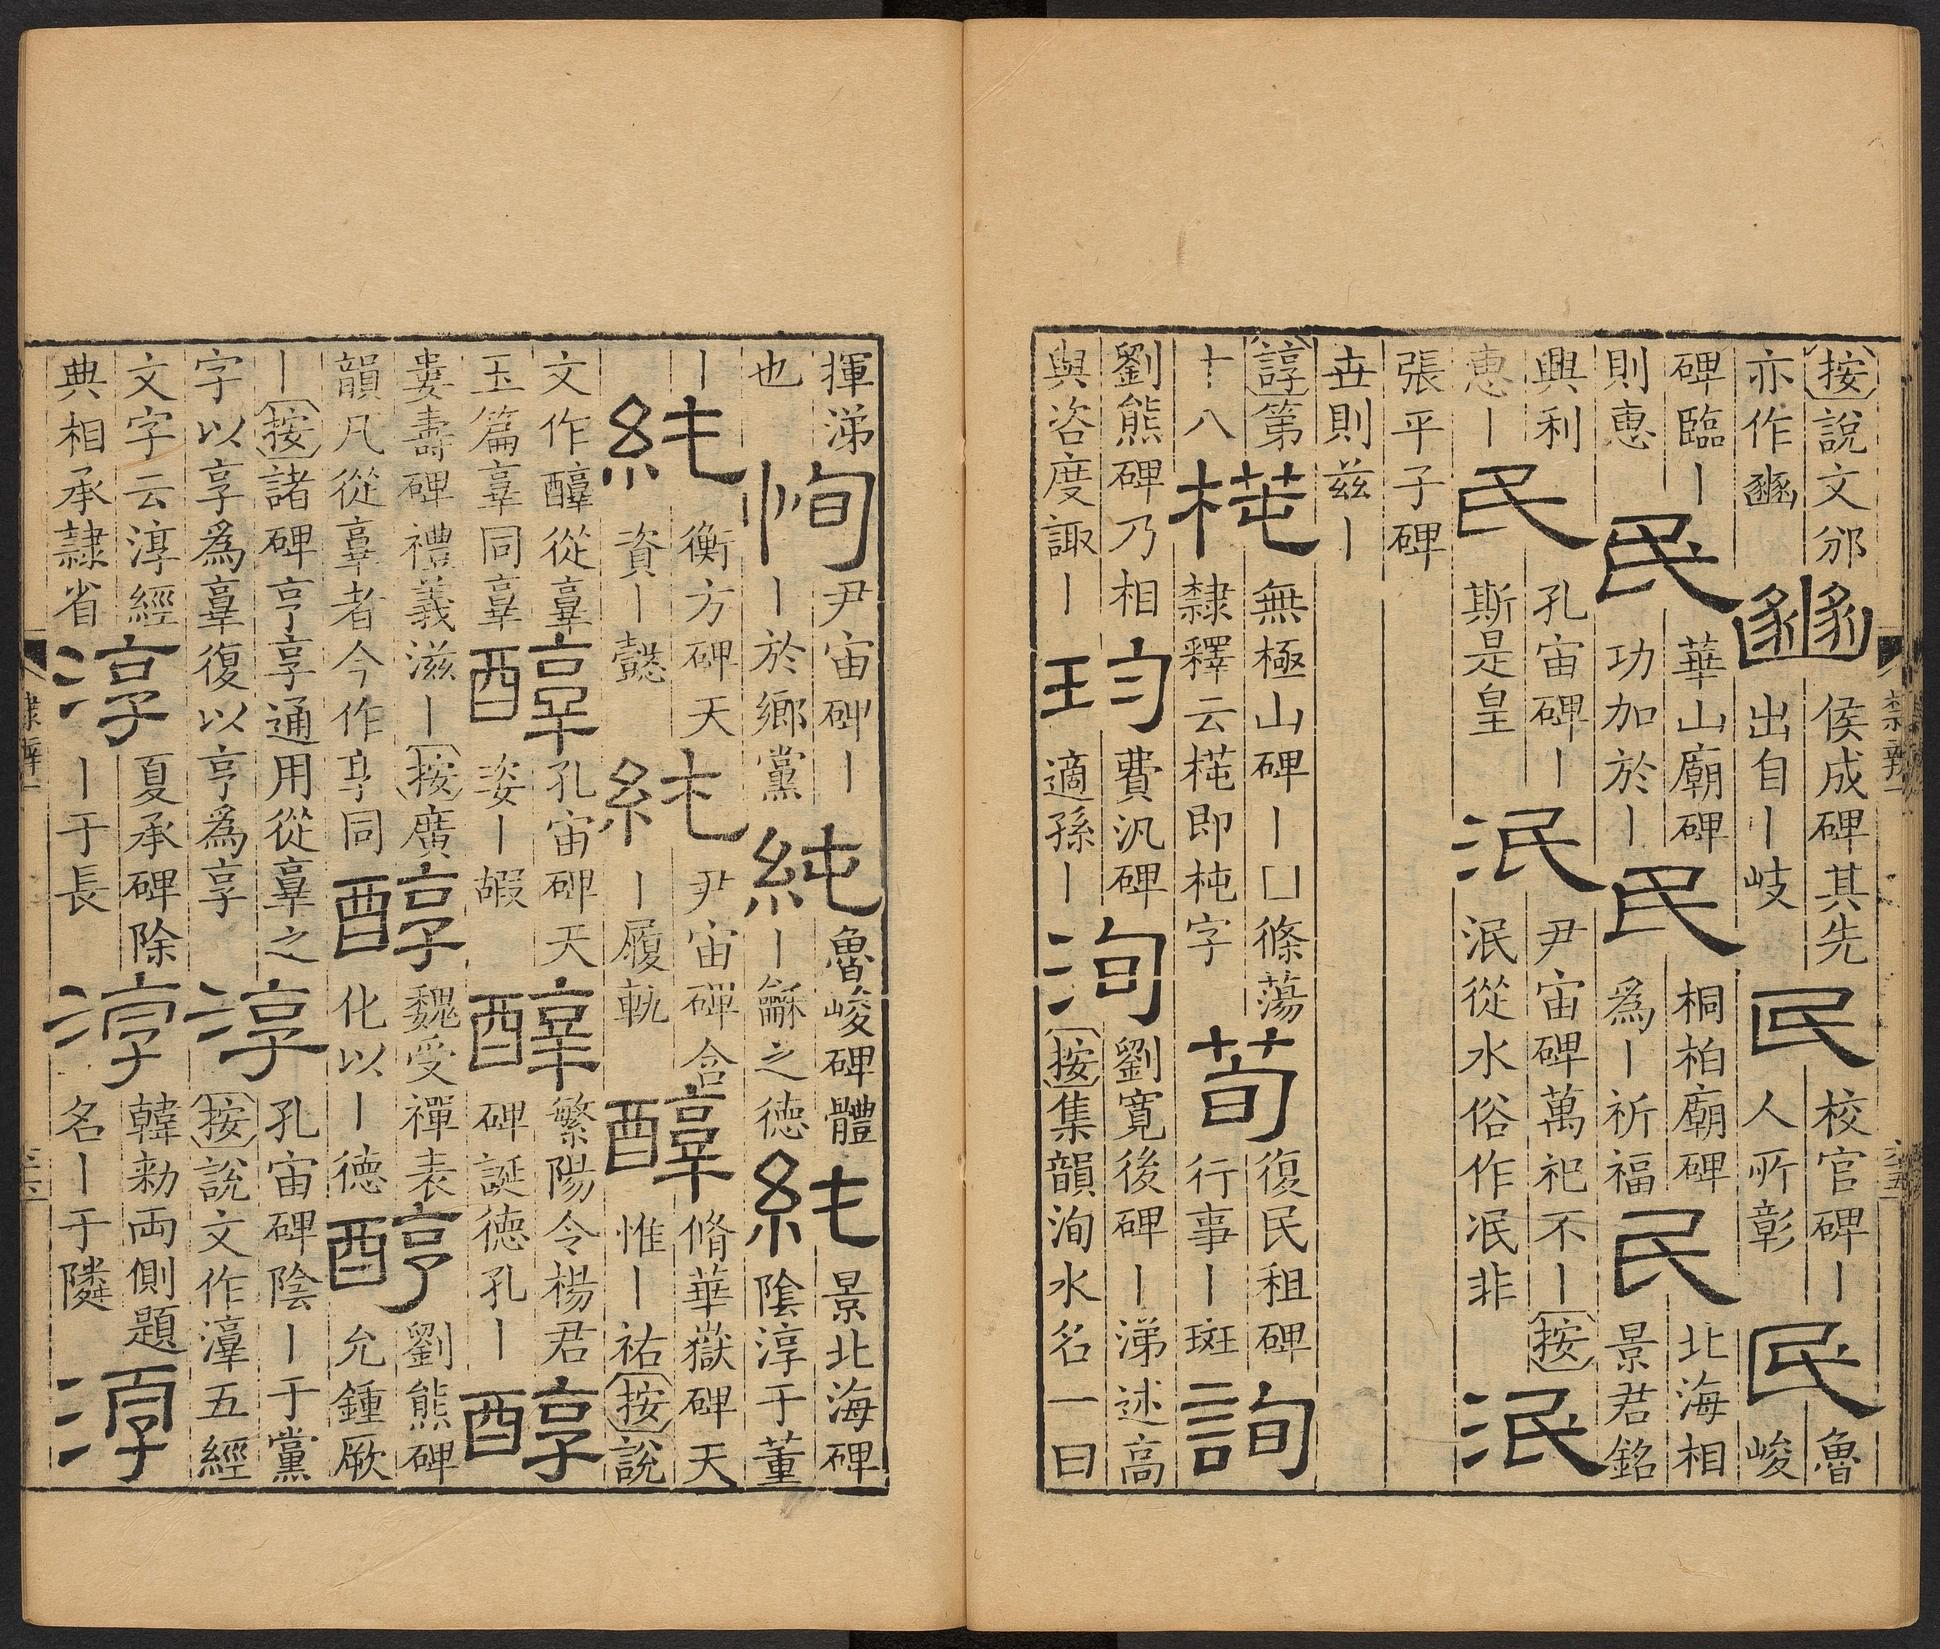 按說文邠亦作豳 豳 侯成碑其先出自丨岐 民 校官碑丨人所彰 民 魯峻
碑臨丨則惠 民 華山廟碑功加於丨 民 桐柏廟碑爲丨祈福 民 北海相景君銘
興利惠丨 民 孔宙碑丨斯是皇 泯 尹宙碑萬祀不丨按泯從水俗作冺非 泯
張平子碑丗則兹丨
諄第十八 㭇 無極山碑丨囗條蕩隸釋云㭇即杶字 荀 復民租碑行事丨斑 詢
劉熊碑乃相與咨度諏丨 玽 費汎碑適孫丨 洵 劉寬後碑丨涕述高按集韻洵水名一曰
隸辨一
揮涕也 恂 尹宙碑丨丨於鄉黨 純 魯峻碑體丨龢之德 純 景北海碑陰淳于董
丨 純 衡方碑天資丨懿 純 尹宙碑含丨履軌 醇 脩華嶽碑天惟丨祐按說
文作醇從𦎧玉篇𦎧同𦎧 醇 孔宙碑天姿丨嘏 醇 繁陽令楊君碑誕德孔丨 醇
婁壽碑禮義滋丨按廣韻凡從𦎧者今作享同 醇 魏受禪表化以丨德 醇 劉熊碑允鍾厥
丨按諸碑亨享通用從𦎧之字以享爲𦎧復以亨爲享 淳 孔宙碑陰丨于黨按說文作𣽎五經
文字云淳經典相承隸省 淳 夏承碑除丨于長 淳 韓勑両側題名丨于隣 淳
隸辨一